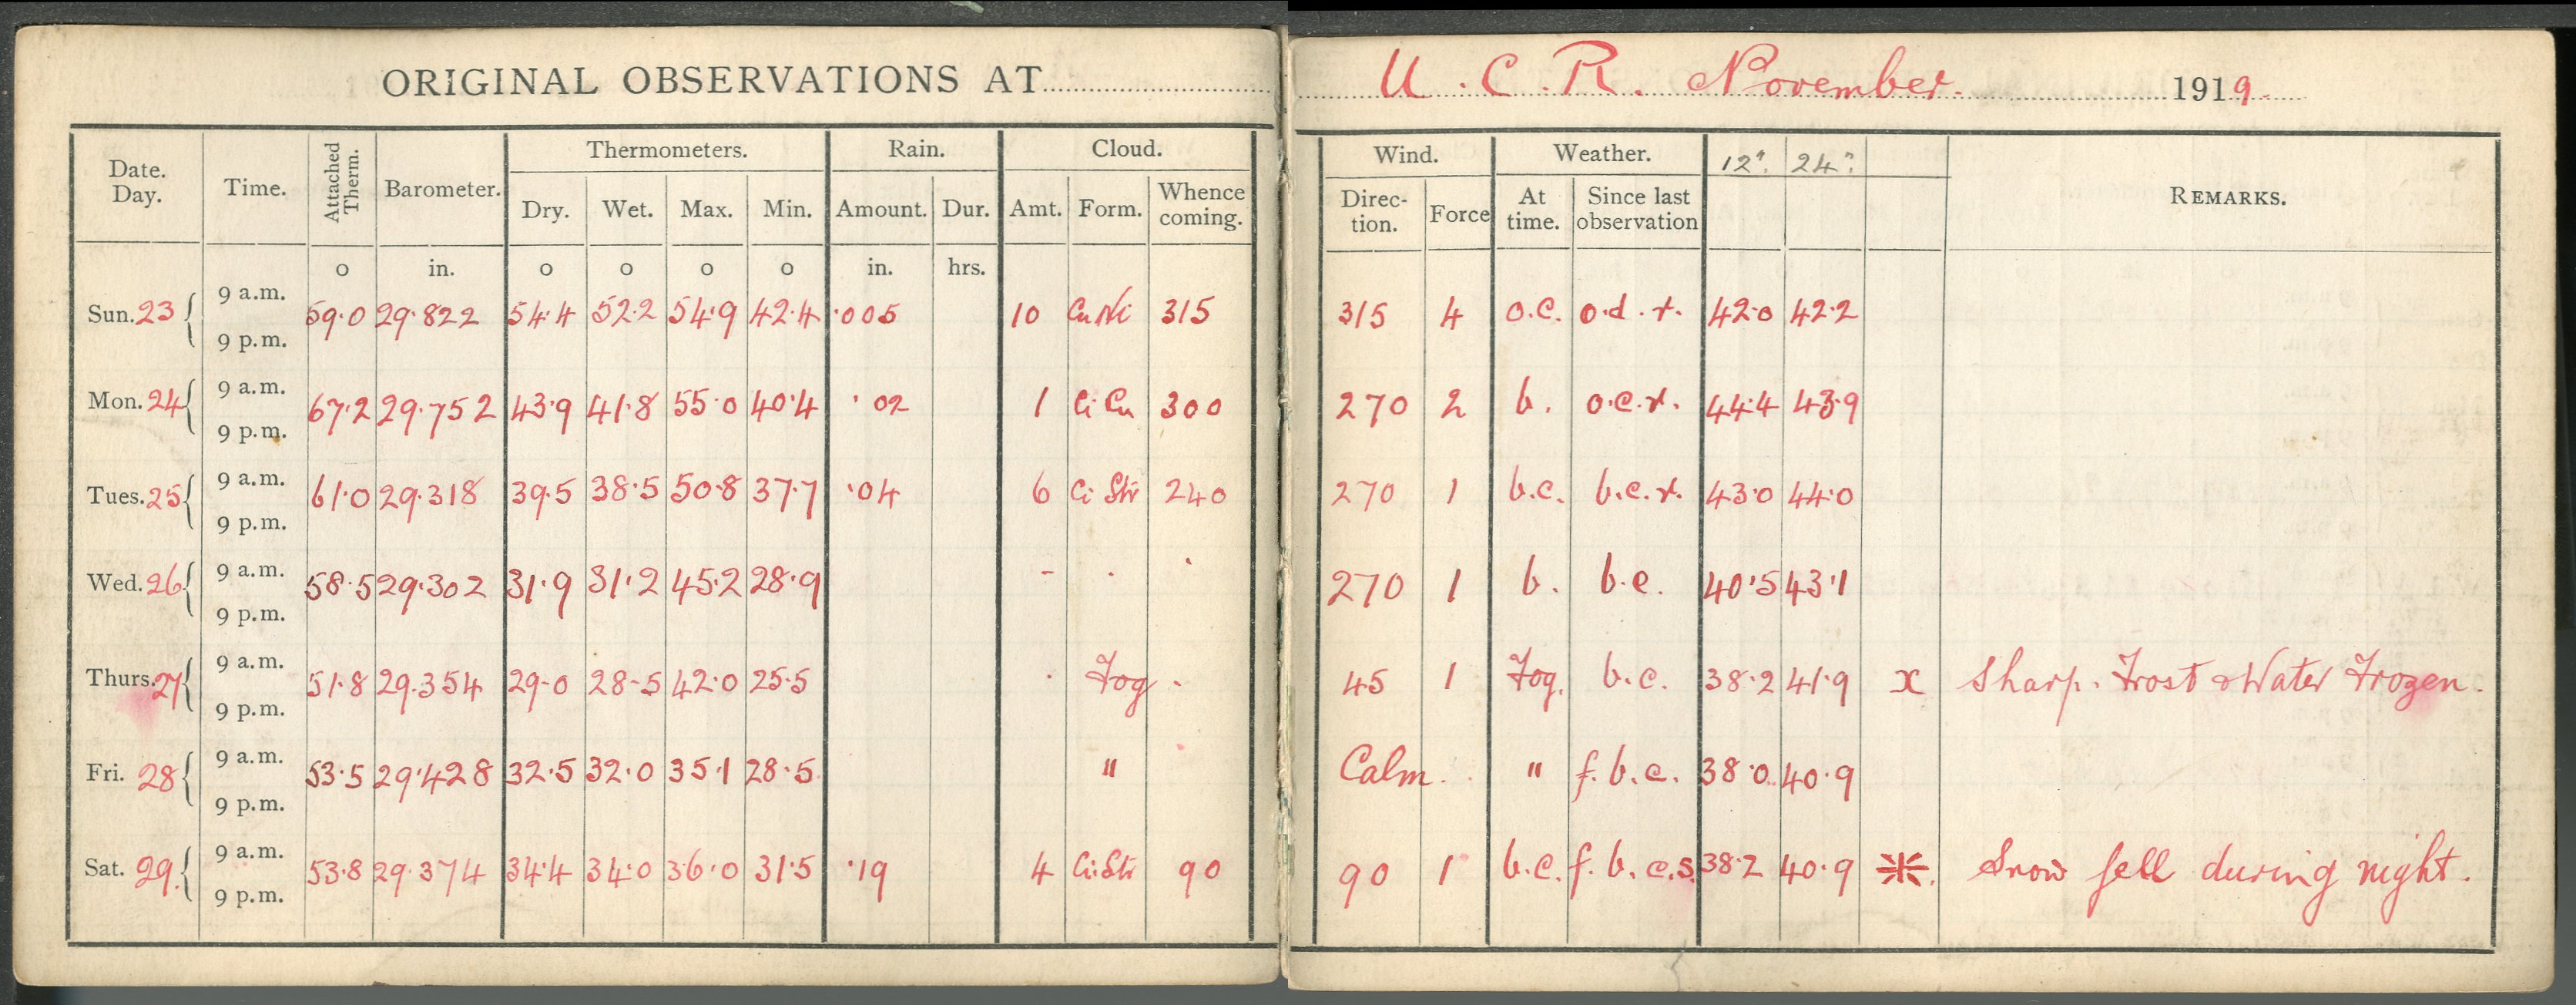 ORIGINAL OBSERVATIONS AT U. C. R. November. 1919.
Date. Day. Time. Attached Therm. Barometer. Thermometers. Rain. Cloud. Wind. Weather. 12". 24". REMARKS.
Dry. Wet. Max. Min. Amount. Dur. Amt. Form. Whence coming. Direction. Force At time. Since last observation
o in. o o o o in. hrs.
Sun. 23 { 9 a.m. 9 p.m. 59.0 29.822 54.4 52.2 54.9 42.4 .005 10 Cu Ni 315 315 4 o.c. o.d.r. 42.0 42.2
Mon. 24 { 9 a.m. 9 p.m. 67.2 29.752 43.9 41.8 55.0 40.4 .02 1 Ci Cu 300 270 2 b. o.c.r. 44.4 43.9
Tues. 25 { 9 a.m. 9 p.m. 61.0 29.318 39.5 38.5 50.8 37.7 .04 6 Ci Str 240 270 1 b.c. b.c.r. 43.0 44.0
Wed. 26 { 9 a.m. 9 p.m. 58.5 29.302 31.9 31.2 45.2 28.9 - . . 270 1 b. b.c. 40.5 43.1
Thurs. 27 { 9 a.m. 9 p.m. 51.8 29.354 29.0 28.5 42.0 25.5 . Fog . 45 1 Fog. b.c. 38.2 41.9 x Sharp. Frost & Water Frozen.
Fri. 28 { 9 a.m. 9 p.m. 53.5 29.428 32.5 32.0 35.1 28.5 " Calm. " f.b.c. 38.0 40.9
Sat. 29. { 9 a.m. 9 p.m. 53.8 29.374 34.4 34.0 36.0 31.5 .19 4 Ci.Str 90 90 1 b.c. f.b.c.s. 38.2 40.9 ⁎. Snow fell during night.